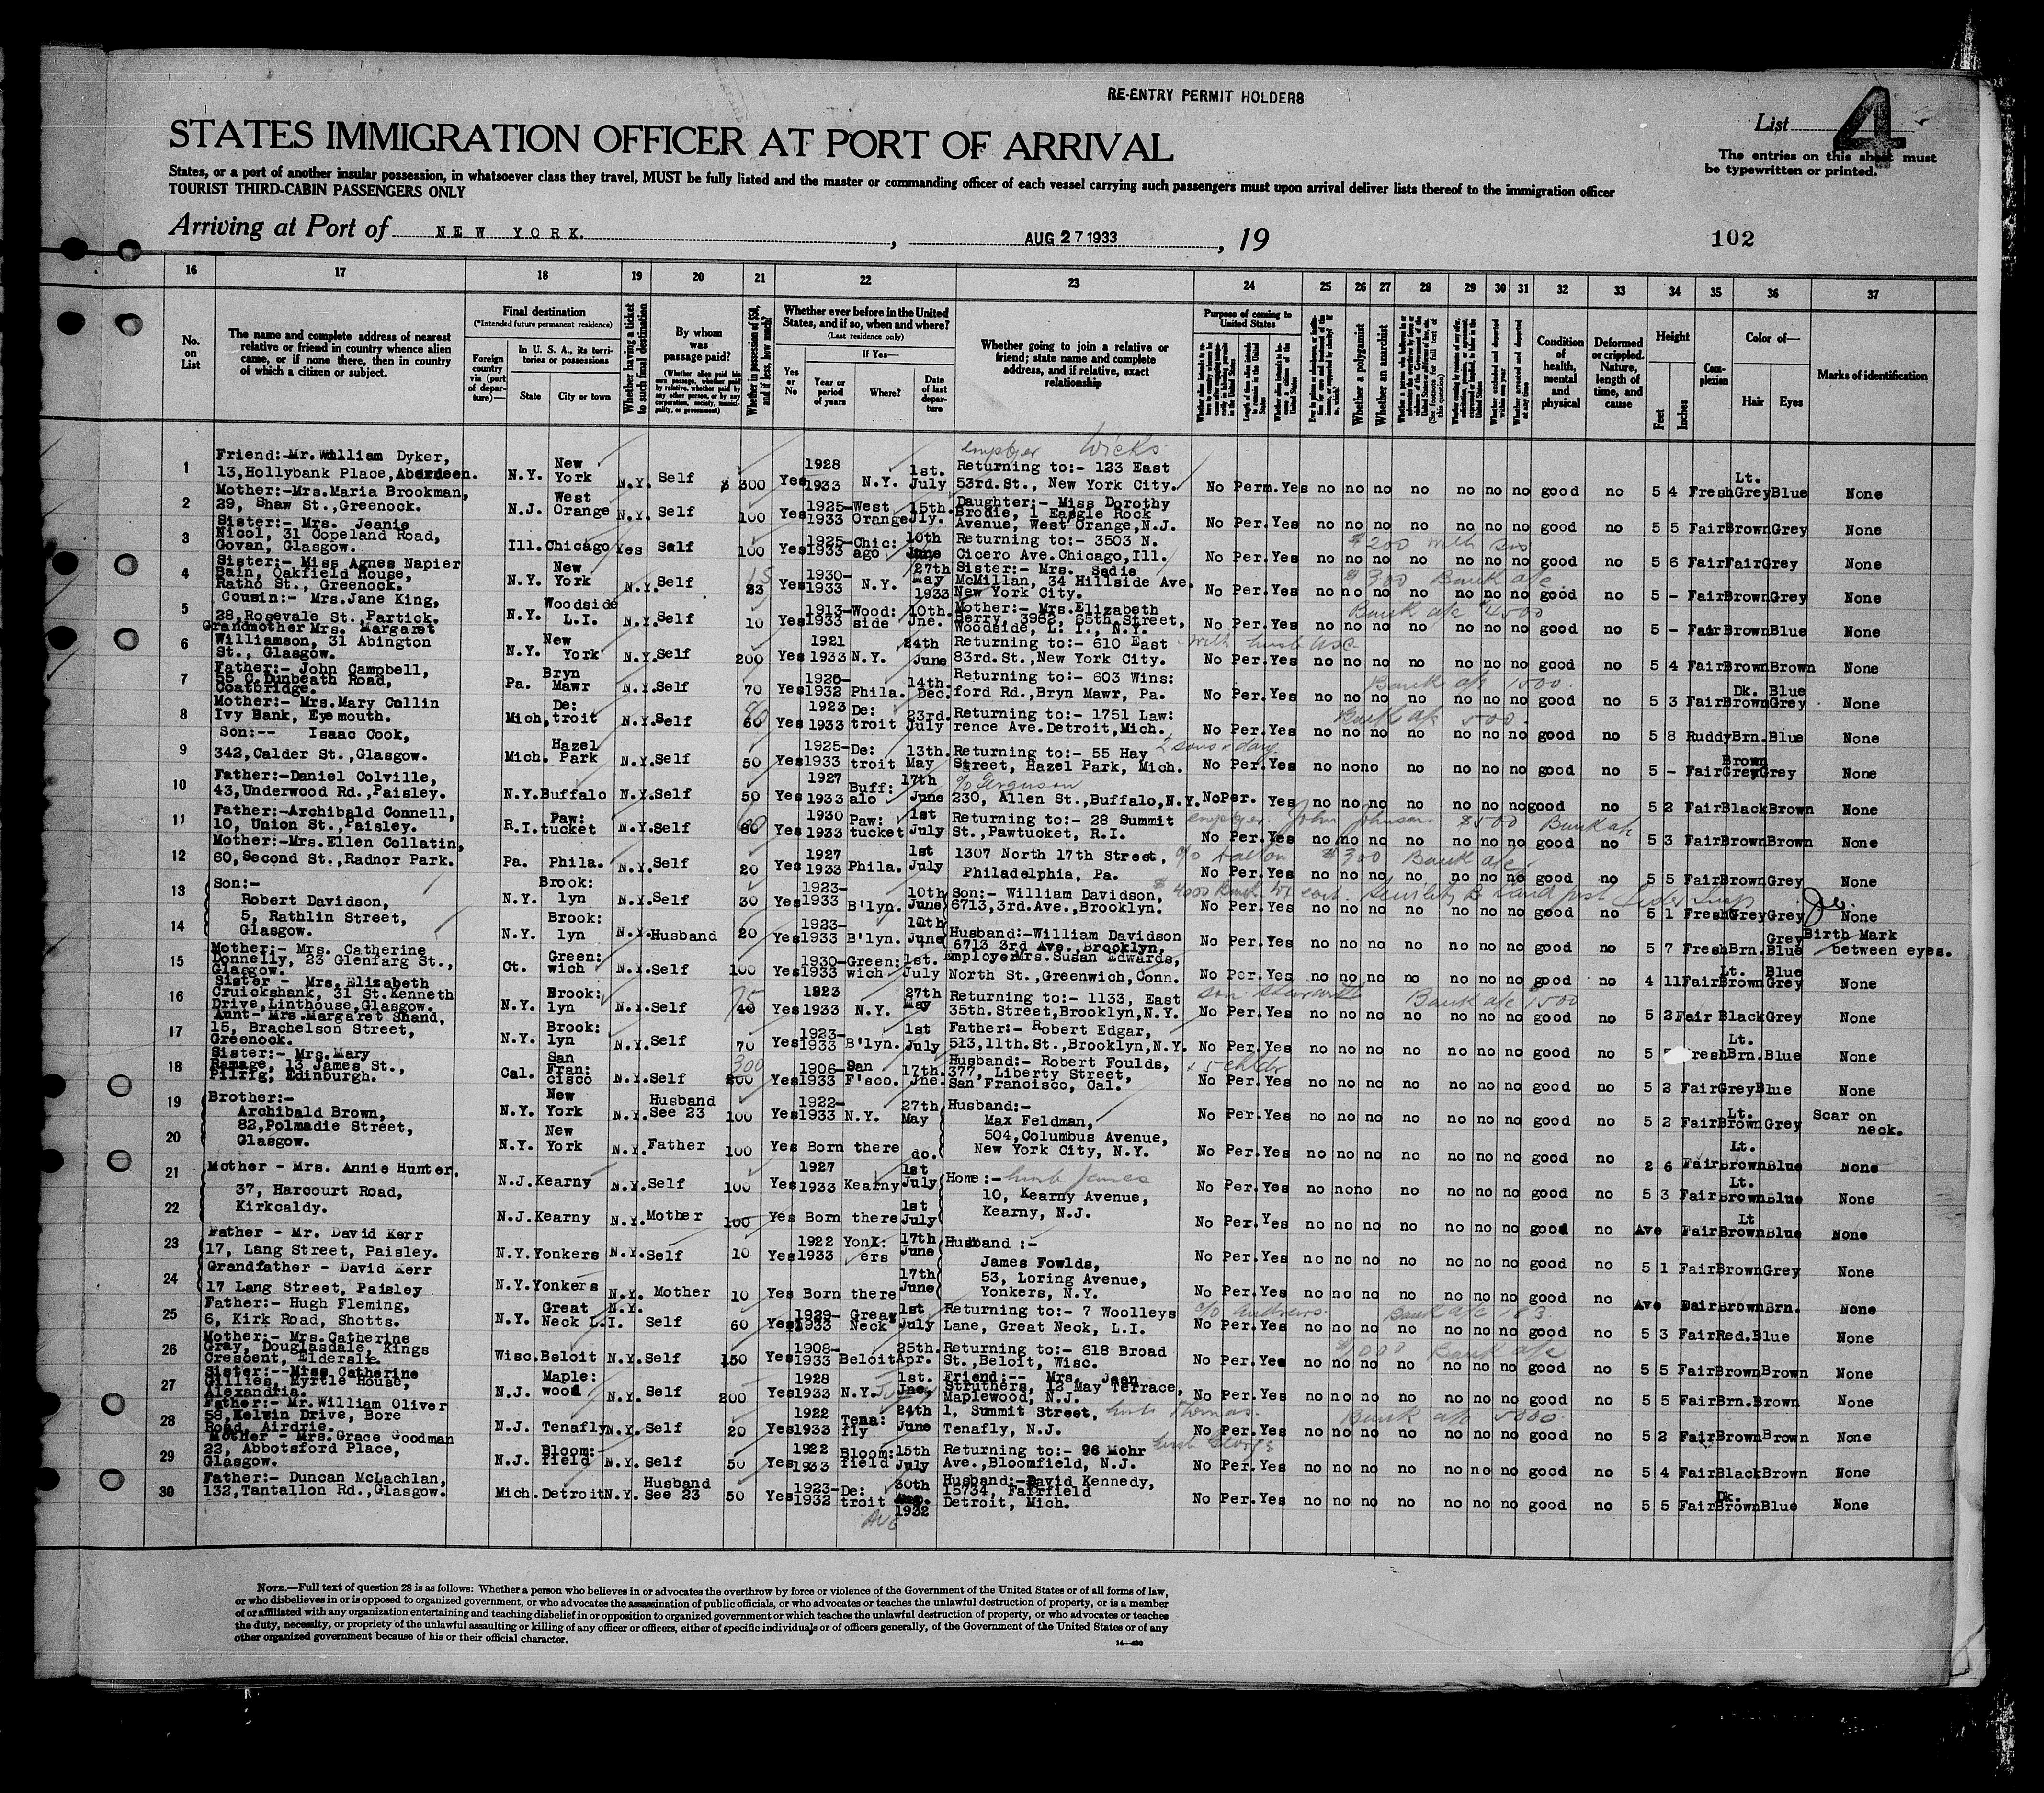 RE-ENTRY PERMIT HOLDERS
STATES IMMIGRATION OFFICER AT PORT OF ARRIVAL
List 4
The entries on this sheet must
be typewritten or printed.
States, or a port of another insular possession, in whatsoever class they travel, MUST be fully listed and the master or commanding officer of each vessel carrying such passengers must upon arrival deliver lists thereof to the immigration officer
TOURIST THIRD-CABIN PASSENGERS ONLY
Arriving at Port of NEW YORK. , AUG 27 1933 , 19
102
16 17 18 19 20 21 22 23 24 25 26 27 28 29 30 31 32 33 34 35 36 37
No. on List
The name and complete address of nearest relative or friend in country whence alien came, or if none there, then in country of which a citizen or subject.
Final destination
(*Intended future permanent residence)
Foreign country via (port of departure)—
In U. S. A., its territories or possessions
State City or town
Whether having a ticket to such final destination
By whom was passage paid?
(Whether alien paid his own passage, whether paid by relative, whether paid by any other person, or by any corporation, society, municipality, or government)
Whether in possession of $50, and if less, how much?
Whether ever before in the United States, and if so, when and where?
(Last residence only)
Yes or No
If Yes—
Year or period of years Where? Date of last departure
Whether going to join a relative or friend; state name and complete address, and if relative, exact relationship
Purpose of coming to United States
Whether a polygamist
Whether an anarchist
Condition of health, mental and physical
Deformed or crippled. Nature, length of time, and cause
Height
Feet Inches
Complexion
Color of—
Hair Eyes
Marks of identification
1 Friend:-Mr. William Dyker, 13,Hollybank Place,Aberdeen. N.Y. New York N.Y. Self $ 300 Yes 1928 1933 N.Y. 1st. July employer Wicks Returning to:- 123 East 53rd.St., New York City. No Perm. Yes no no no no no no no good no 5 4 Fresh Lt. Grey Blue None
2 Mother:-Mrs.Maria Brookman, 29, Shaw St.,Greenock. N.J. West Orange N.Y. Self 100 Yes 1925-1933 West Orange 15th. Jly. Daughter:- Miss Dorothy Brodie, 1 Eagle Rock Avenue, West Orange,N.J. No Per. Yes no no no no no no no good no 5 5 Fair Brown Grey None
3 Sister:- Mrs. Jeanie Nicol, 31 Copeland Road, Govan, Glasgow. Ill. Chicago Yes Self 100 Yes 1925-1933 Chic: ago 10th June Returning to:- 3503 N. Cicero Ave.Chicago,Ill. $200 with No Per. Yes no no no no no no no good no 5 6 Fair Fair Grey None
4 Sister:- Miss Agnes Napier Bain, Oakfield House, Ratho St., Greenock. N.Y. New York N.Y. Self 15 Yes 1930-1933 N.Y. 27th May 1933 Sister:- Mrs. Sadie McMillan, 34 Hillside Ave. New York City. $300 Bank a/c No Per. Yes no no no no no no no good no 5 - Fair Brown Grey None
5 Cousin:- Mrs.Jane King, 28,Rosevale St.,Partick. N.Y. Woodside L.I. N.Y. Self 10 Yes 1913-1933 Wood: side 10th. Jne. Mother:- Mrs.Elizabeth Berry, 3952, 65th.Street, Woodside, L. I., N.Y. Bank a/c $4500 No Per. Yes no no no no no no no good no 5 - Fair Brown Blue None
6 Grandmother Mrs. Margaret Williamson, 31 Abington St., Glasgow. N.Y. New York N.Y. Self 200 Yes 1921 1933 N.Y. 24th June Returning to:- 610 East 83rd.St.,New York City. No Per. Yes no no no no no no no good no 5 4 Fair Brown Brown None
7 Father:- John Campbell, 55 C.Dunbeath Road, Coatbridge. Pa. Bryn Mawr N.Y. Self 70 Yes 1920-1932 Phila. 14th. Dec. Returning to:- 603 Wins: ford Rd.,Bryn Mawr, Pa. Bank a/c 1500. No Per. Yes no no no no no no no good no 5 3 Fair Dk. Brown Blue Grey None
8 Mother:- Mrs.Mary Collin Ivy Bank, Eyemouth. Mich. De: troit N.Y. Self 60 Yes 1923 1933 De: troit 23rd. July Returning to:- 1751 Law: rence Ave.Detroit,Mich. Bank a/c 500. No Per. Yes no no no no no no no good no 5 8 Ruddy Brn. Blue None
9 Son:-- Isaac Cook, 342,Calder St.,Glasgow. Mich. Hazel Park N.Y. Self 50 Yes 1925-1933 De: troit 13th. May Returning to:- 55 Hay Street, Hazel Park, Mich. 2 sons & daur. No Per. Yes no no no no no no no good no 5 - Fair Brown Grey Grey None
10 Father:-Daniel Colville, 43,Underwood Rd.,Paisley. N.Y. Buffalo N.Y. Self 50 Yes 1927 1933 Buff: alo 17th June c/o Ferguson 230, Allen St.,Buffalo,N.Y. No Per. Yes no no no no no no no good no 5 2 Fair Black Brown None
11 Father:-Archibald Connell, 10, Union St.,Paisley. R.I. Paw: tucket N.Y. Self 60 Yes 1930 1933 Paw: tucket 1st July Returning to:- 28 Summit St.,Pawtucket, R.I. employer John Johnson. $500 Bank a/c No Per. Yes no no no no no no no good no 5 3 Fair Brown Brown None
12 Mother:-Mrs.Ellen Collatin, 60,Second St.,Radnor Park. Pa. Phila. N.Y. Self 20 Yes 1927 1933 Phila. 1st July 1307 North 17th Street, Philadelphia, Pa. c/o Dalton $300 Bank a/c No Per. Yes no no no no no no no good no 5 5 Fair Brown Grey None
13 Son:- Robert Davidson, 5, Rathlin Street, Glasgow. N.Y. Brook: lyn N.Y. Self 30 Yes 1923-1933 B'lyn. 10th June Son:- William Davidson, 6713,3rd.Ave.,Brooklyn. $4000 Bank No Per. Yes no no no no no no no good no 5 1 Fresh Grey Grey None
14 N.Y. Brook: lyn N.Y. Husband 20 Yes 1923-1933 B'lyn. 10th June Husband:-William Davidson 6713 3rd Ave.,Brooklyn, No Per. Yes no no no no no no no good no 5 7 Fresh Brn. Grey Blue Birth Mark between eyes.
15 Mother:- Mrs. Catherine Donnelly, 23 Glenfarg St., Glasgow. Ct. Green: wich N.Y. Self 100 Yes 1930-1933 Green: wich 1st. July Employer Mrs.Susan Edwards, North St.,Greenwich,Conn. No Per. Yes no no no no no no no good no 4 11 Fair Lt. Brown Blue Grey None
16 Sister - Mrs. Elizabeth Cruickshank, 31 St.Kenneth Drive,Linthouse,Glasgow. N.Y. Brook: lyn N.Y. Self 75 40 Yes 1923 1933 N.Y. 27th May Returning to:- 1133, East 35th.Street,Brooklyn,N.Y. Bank a/c $1500 No Per. Yes no no no no no no no good no 5 2 Fair Black Grey None
17 Aunt- Mrs.Margaret Shand, 15, Brachelson Street, Greenock. N.Y. Brook: lyn N.Y. Self 70 Yes 1923-1933 B'lyn. 1st July Father:- Robert Edgar, 513,11th.St.,Brooklyn,N.Y. No Per. Yes no no no no no no no good no 5 resh Lt. Brn. Blue None
18 Sister:- Mrs.Mary Ramage, 13 James St., Pilrig, Edinburgh. Cal. San Fran: cisco N.Y. Self 300 200 Yes 1906-1933 San F'sco. 17th. Jne. Husband:- Robert Foulds, 377, Liberty Street, San Francisco, Cal. + 5 childr No Per. Yes no no no no no no no good no 5 2 Fair Grey Blue None
19 Brother:- Archibald Brown, 82,Polmadie Street, Glasgow. N.Y. New York N.Y. Husband See 23 100 Yes 1922-1933 N.Y. 27th May Husband:- Max Feldman, 504,Columbus Avenue, New York City, N.Y. No Per. Yes no no no no no no no good no 5 2 Fair Lt. Brown Grey Scar on neck.
20 N.Y. New York N.Y. Father 100 Yes Born there do. No Per. Yes no no no no no no no good no 2 6 Fair Lt. Brown Blue None
21 Mother - Mrs. Annie Hunter, 37, Harcourt Road, Kirkcaldy. N.J. Kearny N.Y. Self 100 Yes 1927 1933 Kearny 1st July Home:- husb James 10, Kearny Avenue, Kearny, N.J. No Per. Yes no no no no no no no good no 5 3 Fair Lt. Brown Blue None
22 N.J. Kearny N.Y. Mother 100 Yes Born there 1st July No Per. Yes no no no no no no no good no Ave Fair Lt Brown Blue None
23 Father - Mr. David Kerr 17, Lang Street, Paisley. N.Y. Yonkers N.Y. Self 10 Yes 1922 1933 Yonk: ers 17th June Husband :- James Fowlds, 53, Loring Avenue, Yonkers, N.Y. No Per. Yes no no no no no no no good no 5 1 Fair Brown Grey None
24 Grandfather - David Kerr 17 Lang Street, Paisley N.Y. Yonkers N.Y. Mother 10 Yes Born there 17th June No Per. Yes no no no no no no no good no Ave Dair Brown Brn. None
25 Father:- Hugh Fleming, 6, Kirk Road, Shotts. N.Y. Great Neck L.I. N.Y. Self 60 Yes 1929-1933 Great Neck 1st July Returning to:- 7 Woolleys Lane, Great Neck, L.I. c/o Andrews. Bank a/c 183 No Per. Yes no no no no no no no good no 5 3 Fair Red. Blue None
26 Mother:- Mrs.Catherine Gray, Douglasdale, Kings Crescent, Elderslie. Wisc. Beloit N.Y. Self 150 Yes 1908-1933 Beloit 25th. Apr. Returning to:- 618 Broad St.,Beloit, Wisc. $1,000 Bank a/c No Per. Yes no no no no no no no good no 5 5 Fair Brown Brown None
27 Sister:--Miss Catherine Gillies, Myrtle House, Alexandria. N.J. Maple: wood N.Y. Self 200 Yes 1928 1933 N.Y. 1st. Jne. Friend:-- Mrs. Jean Struthers, 12 May Terrace, Maplewood, N.J. No Per. Yes no no no no no no no good no 5 5 Fair Brn. Brown None
28 Father:- Mr.William Oliver 58,Kelwin Drive, Bore Road, Airdrie. N.J. Tenafly N.Y. Self 20 Yes 1922 1933 Tena: fly 24th June 1, Summit Street, Tenafly, N.J. husb Thomas. Bank a/c 5000. No Per. Yes no no no no no no no good no 5 2 Fair Brown Brown None
29 Mother - Mrs.Grace Goodman 22, Abbotsford Place, Glasgow. N.J. Bloom: field N.Y. Self 50 Yes 1922 1933 Bloom: field 15th July Returning to:- 96 Mohr Ave.,Bloomfield, N.J. husb George No Per. Yes no no no no no no no good no 5 4 Fair Black Brown None
30 Father:- Duncan McLachlan, 132,Tantallon Rd.,Glasgow. Mich. Detroit N.Y. Husband See 23 50 Yes 1923-1932 De: troit 30th Aug. 1932 AUG Husband:-David Kennedy, 15734, Fairfield Detroit, Mich. No Per. Yes no no no no no no no good no 5 5 Fair Dk. Brown Blue None
NOTE.—Full text of question 28 is as follows: Whether a person who believes in or advocates the overthrow by force or violence of the Government of the United States or of all forms of law,
or who disbelieves in or is opposed to organized government, or who advocates the assassination of public officials, or who advocates or teaches the unlawful destruction of property, or is a member
of or affiliated with any organization entertaining and teaching disbelief in or opposition to organized government or which teaches the unlawful destruction of property, or who advocates or teaches
the duty, necessity, or propriety of the unlawful assaulting or killing of any officer or officers, either of specific individuals or of officers generally, of the Government of the United States or of any
other organized government because of his or their official character.
14—430